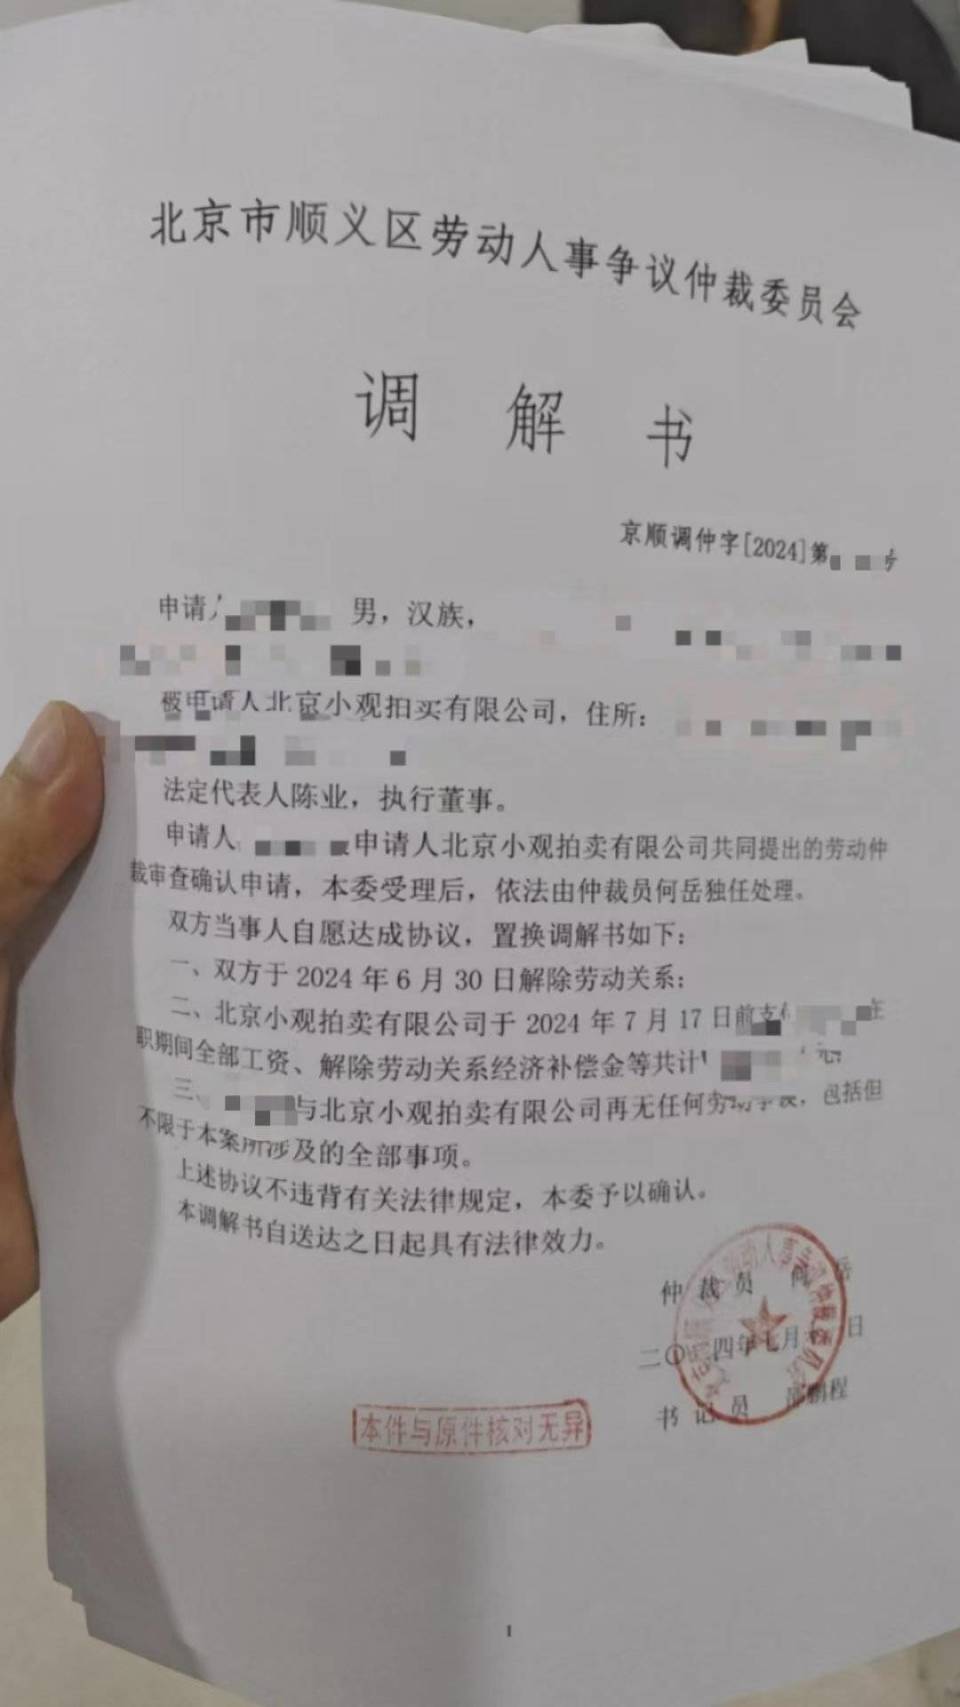 北京市顺义区劳动人事争议仲裁委员会
调解书
京顺调仲字[2024]第 号
申请人 男，汉族，
被申请人北京小观拍卖有限公司，住所：
法定代表人陈业，执行董事。
申请人 申请人北京小观拍卖有限公司共同提出的劳动仲
裁审查确认申请，本委受理后，依法由仲裁员何岳独任处理。
双方当事人自愿达成协议，置换调解书如下：
一、双方于2024年6月30日解除劳动关系；
二、北京小观拍卖有限公司于2024年7月17日前支付 在
职期间全部工资、解除劳动关系经济补偿金等共计 元；
三、 与北京小观拍卖有限公司再无任何劳动争议，包括但
不限于本案所涉及的全部事项。
上述协议不违背有关法律规定，本委予以确认。
本调解书自送达之日起具有法律效力。
仲裁员 何岳
二〇 四年七月 日
书记员 邵鹏程
本件与原件核对无异
1